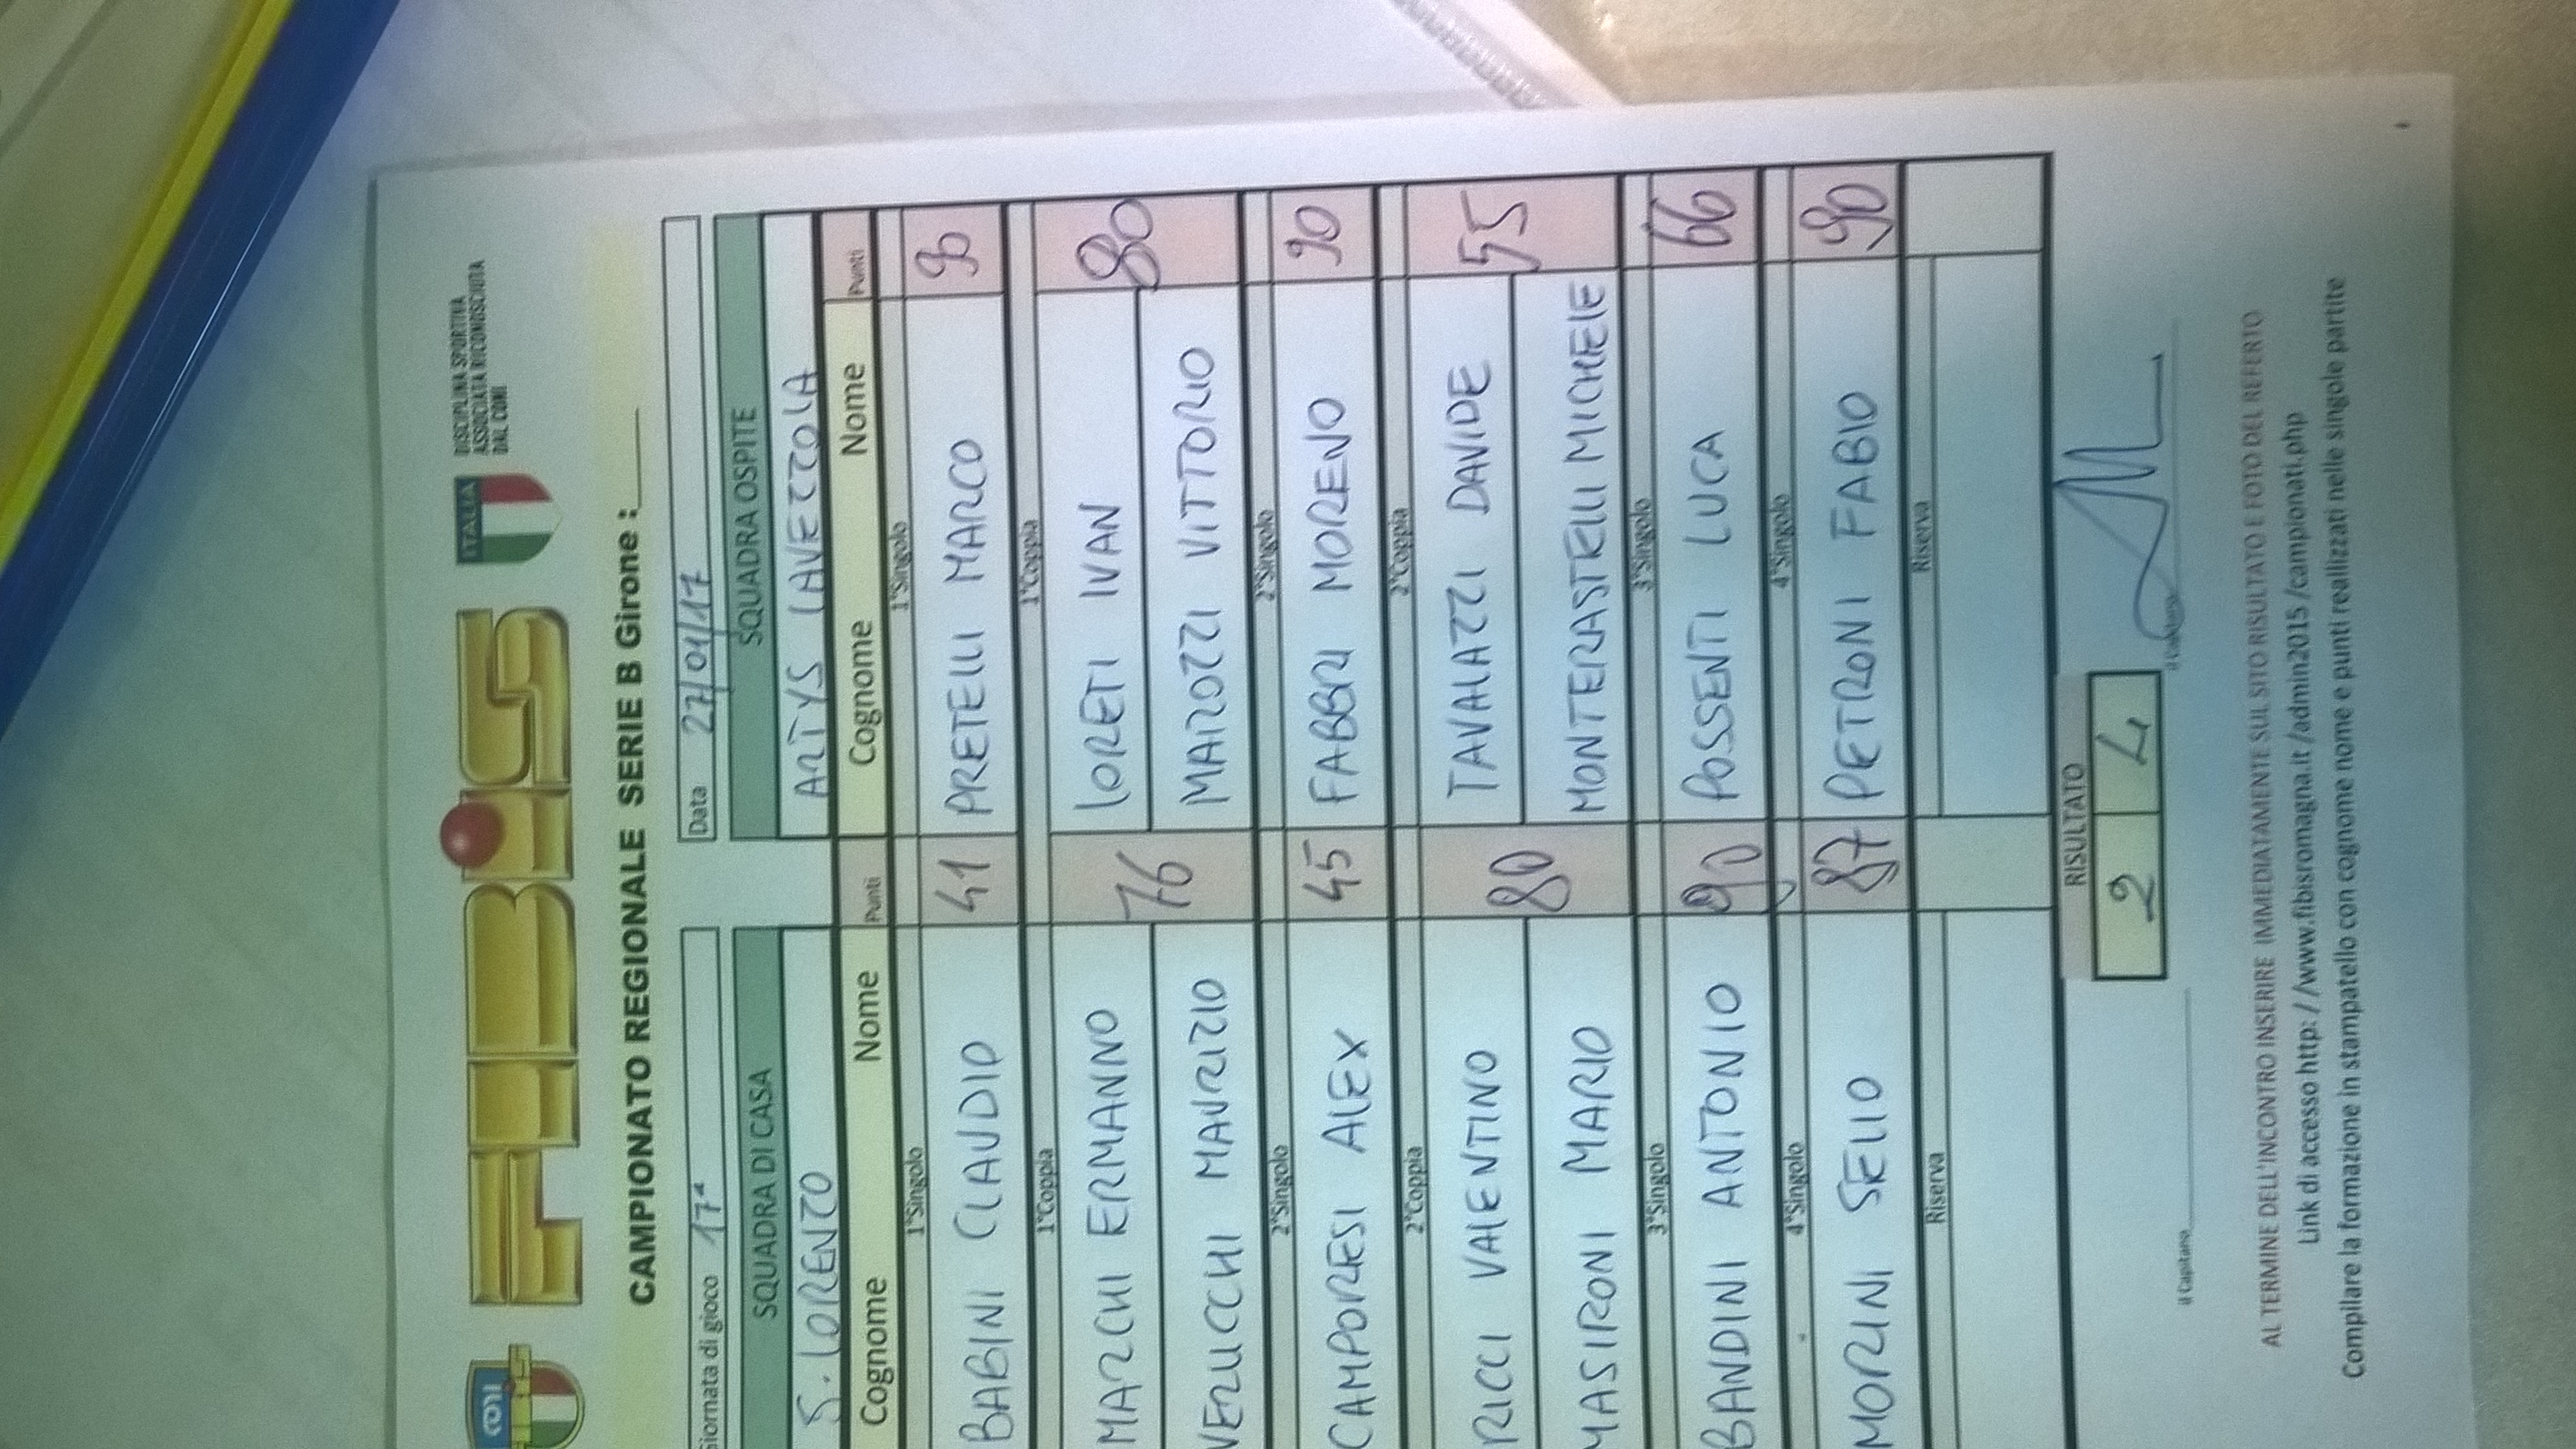 CONI
FIBiS
ITALIA
DISCIPLINA SPORTIVA
ASSOCIATA RICONOSCIUTA
DAL CONI
CAMPIONATO REGIONALE SERIE B Girone :
Giornata di gioco 17ª Data 27/01/17
SQUADRA DI CASA SQUADRA OSPITE
S. LORENZO ARTYS LAVEZZOLA
Cognome Nome Punti Cognome Nome Punti
1°Singolo 1°Singolo
BABINI CLAUDIO 41 PRETELLI MARCO 90
1°Coppia 1°Coppia
MARCHI ERMANNO 76 LORETI IVAN 80
VERLICCHI MAURIZIO MAROZZI VITTORIO
2°Singolo 2°Singolo
CAMPORESI ALEX 45 FABBRI MORENO 90
2°Coppia 2°Coppia
RICCI VALENTINO 80 TAVALAZZI DAVIDE 55
MASIRONI MARIO MONTERASTELLI MICHELE
3°Singolo 3°Singolo
BANDINI ANTONIO 90 POSSENTI LUCA 66
4°Singolo 4°Singolo
MORINI SELIO 87 PETRONI FABIO 90
Riserva Riserva
RISULTATO
2 4
il Capitano il Capitano
AL TERMINE DELL'INCONTRO INSERIRE IMMEDIATAMENTE SUL SITO RISULTATO E FOTO DEL REFERTO
Link di accesso http: //www.fibisromagna.it /admin2015 /campionati.php
Compilare la formazione in stampatello con cognome none e punti realizzati nelle singole partite